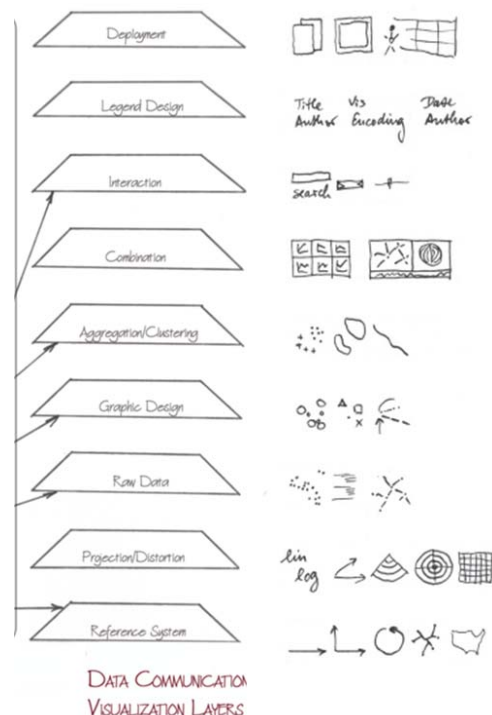 Deployment
Legend Design
Title Vis Date
Author Encoding Author
Interaction
search
Combination
Aggregation/Clustering
Graphic Design
Raw Data
Projection/Distortion
lin
log
Reference System
DATA COMMUNICATION
VISUALIZATION LAYERS